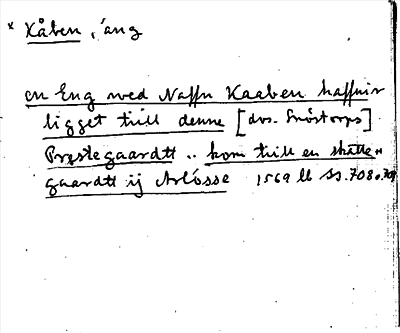 * Kåben, äng
en Eng wed Naffn Kaaben haffuir
ligget till denne [dvs. Snöstorps]
Præstegaardtt .. kom till en skatte=
gaardtt ij Arlösse 1569 ll Ss. 708